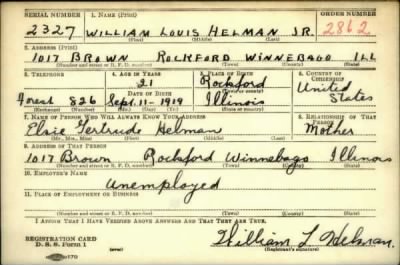 SERIAL NUMBER 1. NAME (Print) ORDER NUMBER
2327 WILLIAM LOUIS HELMAN JR. 2862
(First) (Middle) (Last)
2. ADDRESS (Print)
1017 BROWN ROCKFORD WINNEBAGO ILL
(Number and street or R. F. D. number) (Town) (County) (State)
3. TELEPHONE 4. AGE IN YEARS 5. PLACE OF BIRTH 6. COUNTRY OF CITIZENSHIP
21 Rockford United
DATE OF BIRTH (Town or county)
Forest 826 Sept. 11 - 1919 Illinois States
7. NAME OF PERSON WHO WILL ALWAYS KNOW YOUR ADDRESS 8. RELATIONSHIP OF THAT PERSON
Elsie Gertrude Helman Mother
(Mr., Mrs., Miss) (First) (Middle) (Last)
9. ADDRESS OF THAT PERSON
1017 Brown Rockford Winnebago Illinois
(Number and street or R. F. D. number) (Town) (County) (State)
10. EMPLOYER'S NAME
Unemployed
11. PLACE OF EMPLOYMENT OR BUSINESS
(Number and street or R. F. D. number) (Town) (County) (State)
I AFFIRM THAT I HAVE VERIFIED ABOVE ANSWERS AND THAT THEY ARE TRUE.
REGISTRATION CARD
D. S. S. Form 1 (over)
William L Helman
(Registrant's signature)